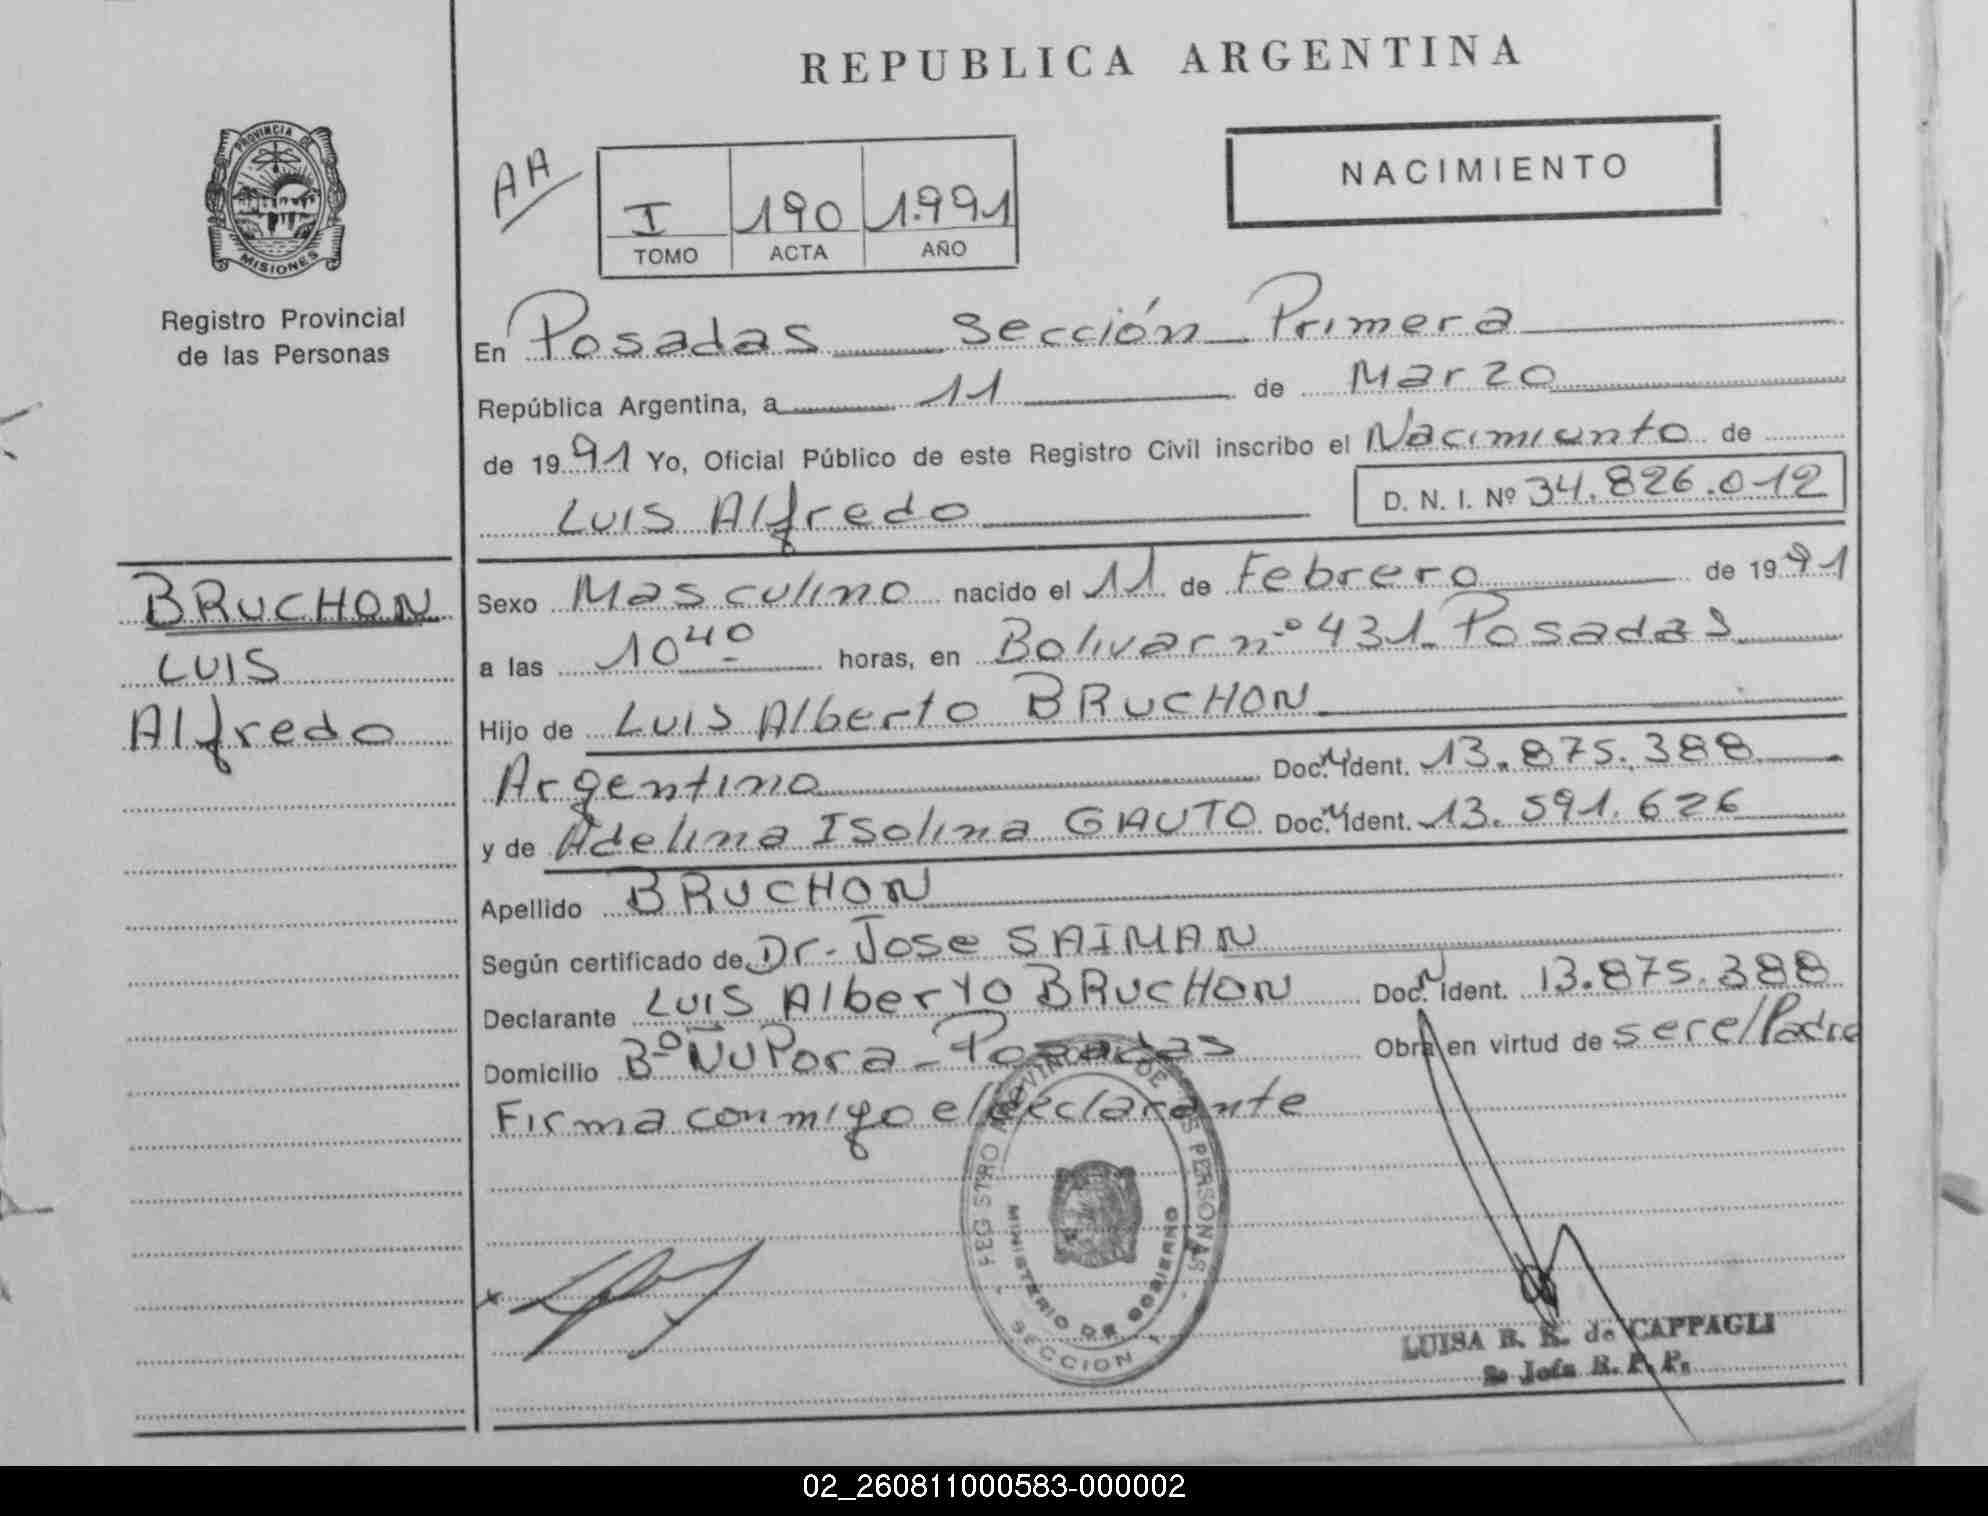 REPUBLICA ARGENTINA
PROVINCIA DE
MISIONES
Registro Provincial
de las Personas
AA
I 190 1.991
TOMO ACTA AÑO
NACIMIENTO
En Posadas Sección Primera
República Argentina, a 11 de Marzo
de 1991 Yo, Oficial Público de este Registro Civil inscribo el Nacimiento de
Luis Alfredo D. N. I. Nº 34.826.012
BRUCHON
LUIS
Alfredo
Sexo Masculino nacido el 11 de Febrero de 1991
a las 10 40 horas, en Bolivar nº 431 - Posadas
Hijo de Luis Alberto BRUCHON
Argentino Doc. N. Ident. 13.875.388
y de Adelina Isolina GAUTO Doc. N. Ident. 13.591.626
Apellido BRUCHON
Según certificado de Dr. Jose SAIMAN
Declarante Luis Alberto BRUCHON Doc. N. Ident. 13.875.388
Domicilio Bº Ñu Pora - Posadas Obra en virtud de ser el Padre
Firma conmigo el declarante
REGISTRO PROVINCIAL DE LAS PERSONAS
MINISTERIO DE GOBIERNO
SECCION 1
LUISA R. K. de CAPPAGLI
Jefa R. P. P.
02_260811000583-000002